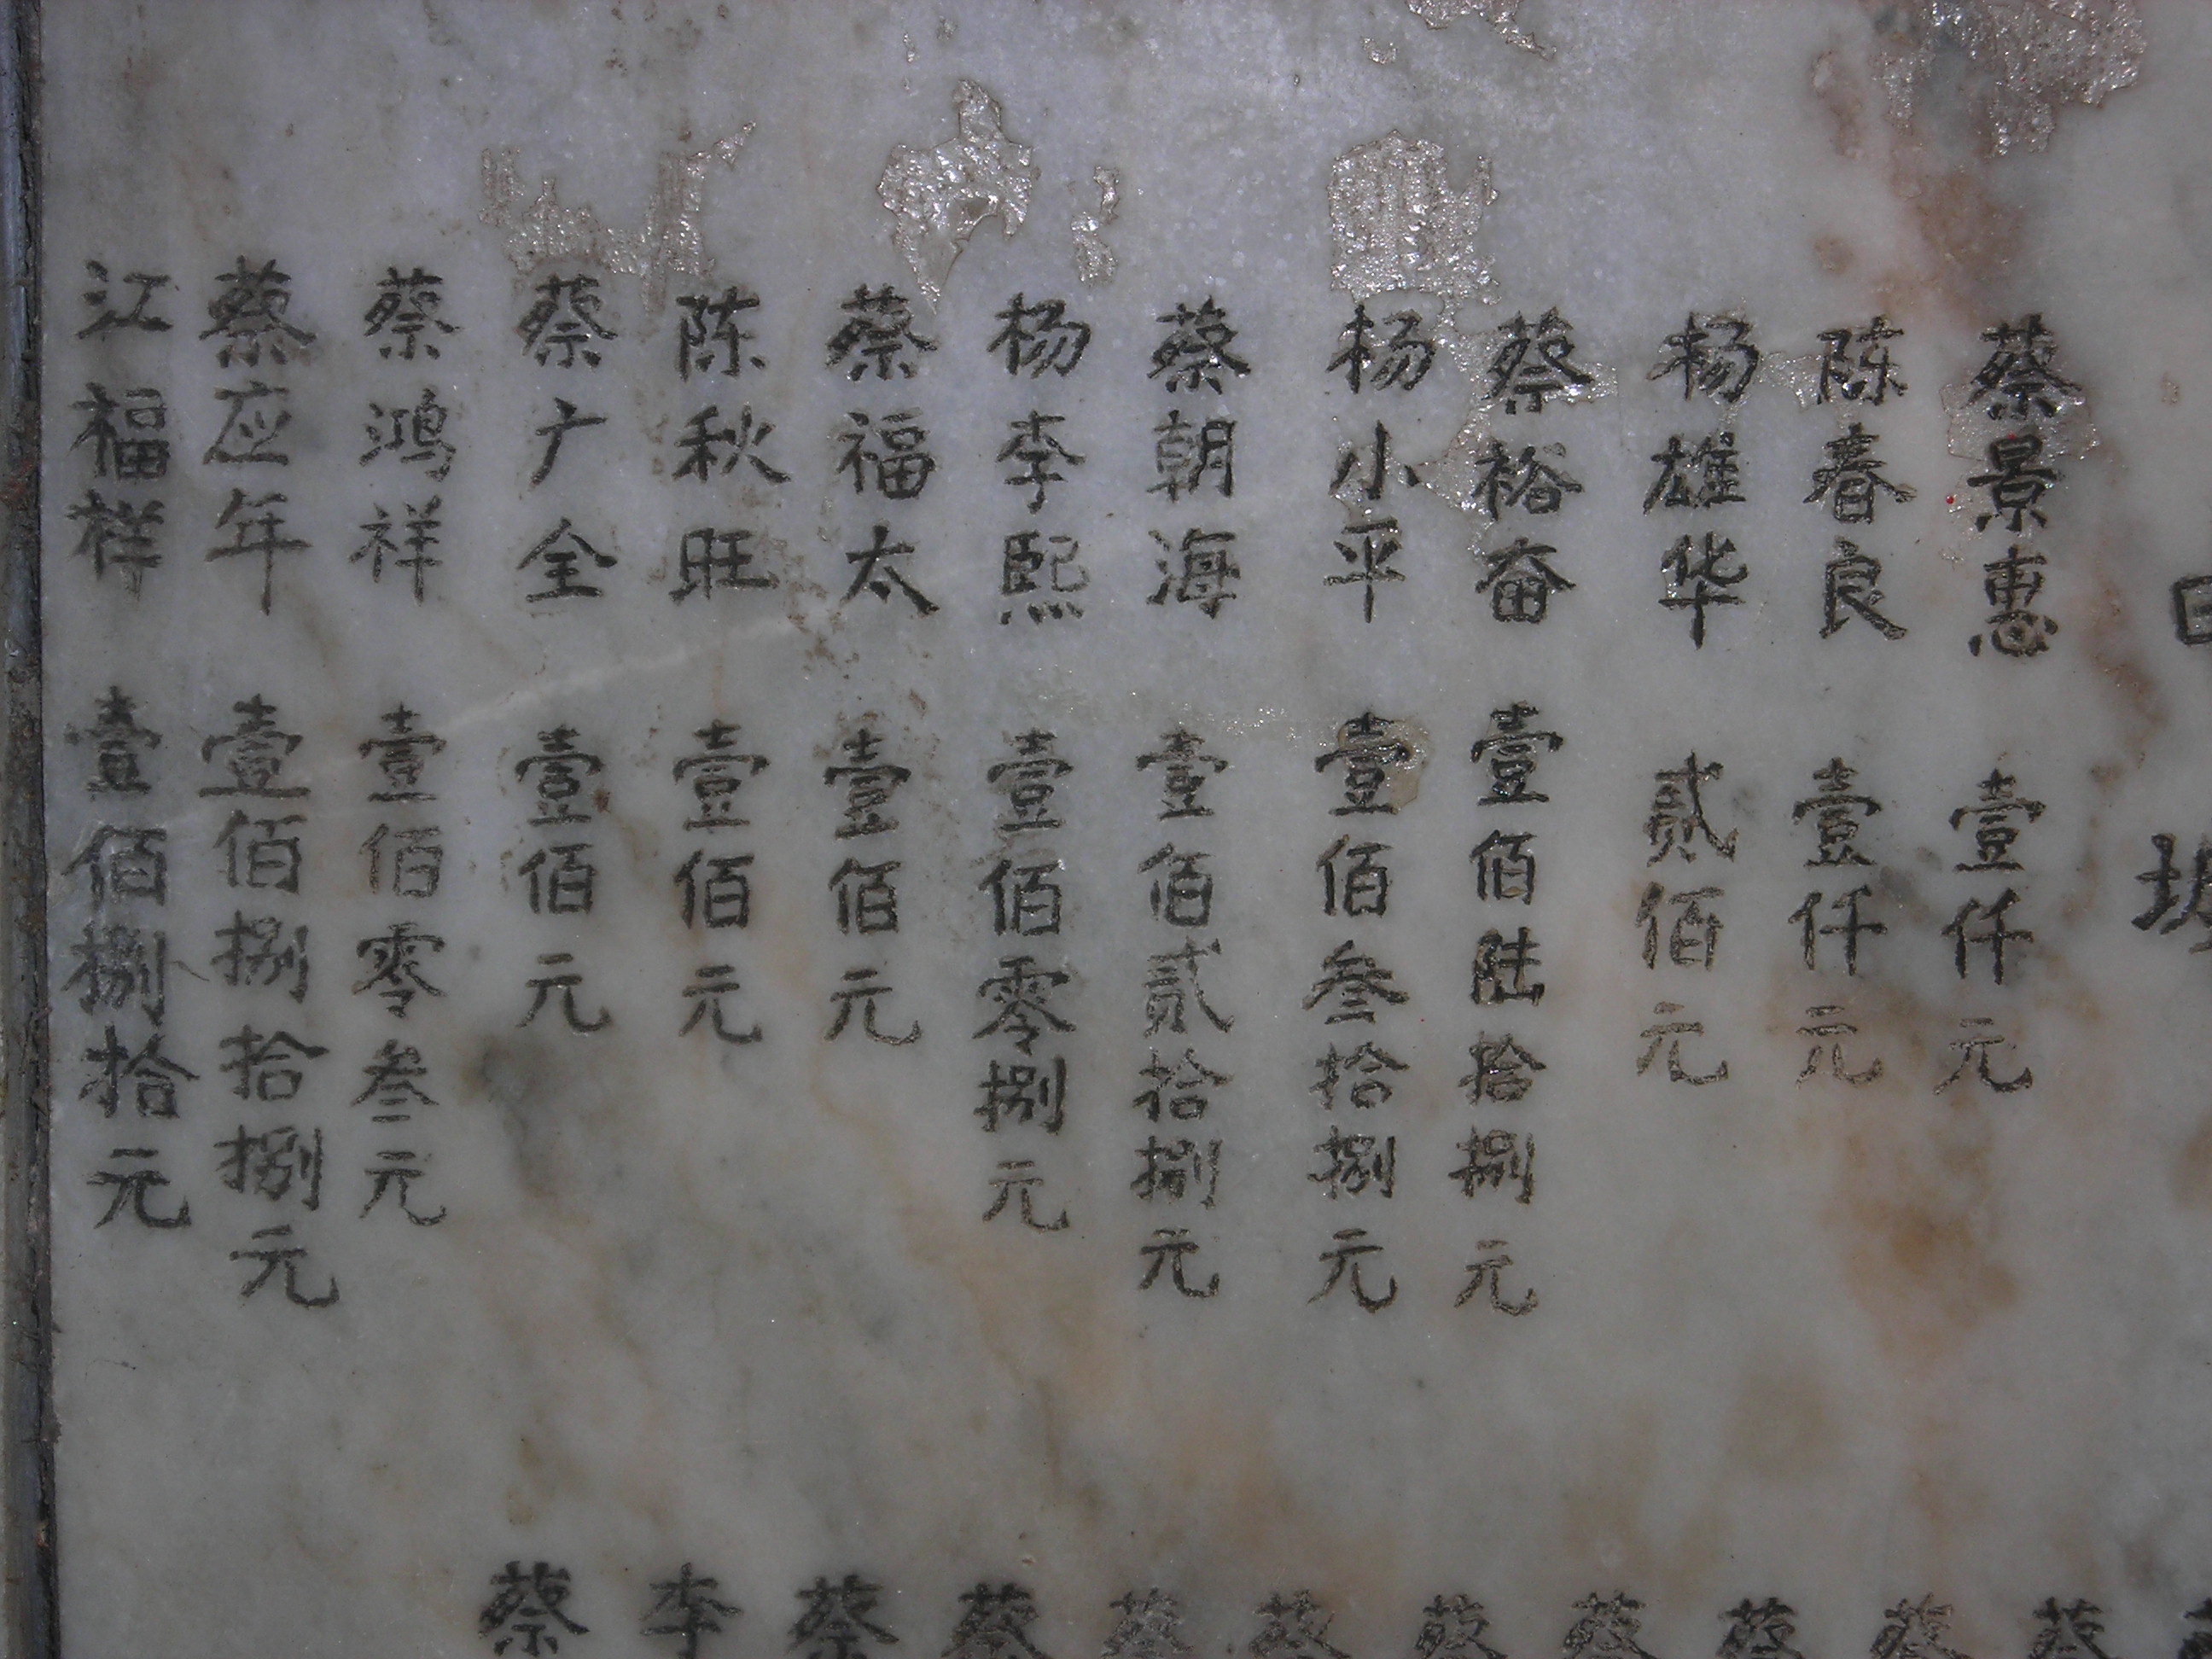 蔡景惠 壹仟元
陈春良 壹仟元
杨雄华 贰佰元
蔡裕奋 壹佰陆拾捌元
杨小平 壹佰叁拾捌元
蔡朝海 壹佰贰拾捌元
杨李熙 壹佰零捌元
蔡福太 壹佰元
陈秋旺 壹佰元
蔡广全 壹佰元
蔡鸿祥 壹佰零叁元
蔡应年 壹佰捌拾捌元
江福祥 壹佰捌拾元
蔡
蔡
蔡
蔡
蔡
蔡
蔡
蔡
蔡
李
蔡